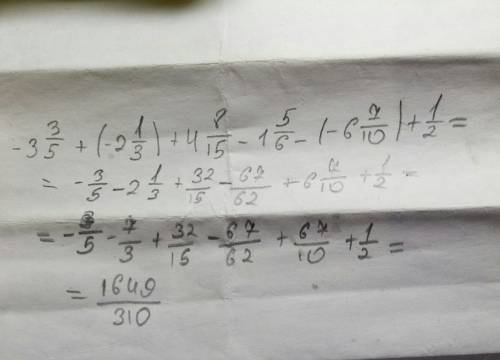 -3 3/5 + (-2 1/3) + 4 8/15 - 1 5/6 - (-6 7/10) + 1/2 =
= -3/5 - 2 1/3 + 32/15 - 67/62 + 6 7/10 + 1/2 =
= -3/5 - 7/3 + 32/15 - 67/62 + 67/10 + 1/2 =
= 1649/310